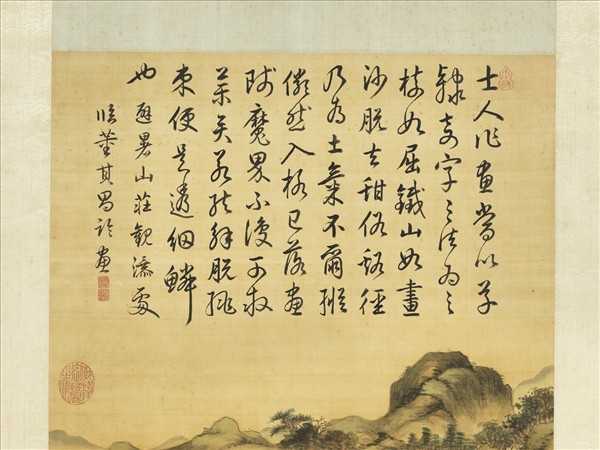 士人作畫當以草
隸奇字之法為之
樹如屈鐵山如畫
沙脫去甜俗蹊徑
乃為士氣不爾縱
儼然入格已落畫
師魔界不復可救
藥矣若能解脫繩
束便是透網鱗
也 避暑山莊觀瀑處
臨董其昌論畫